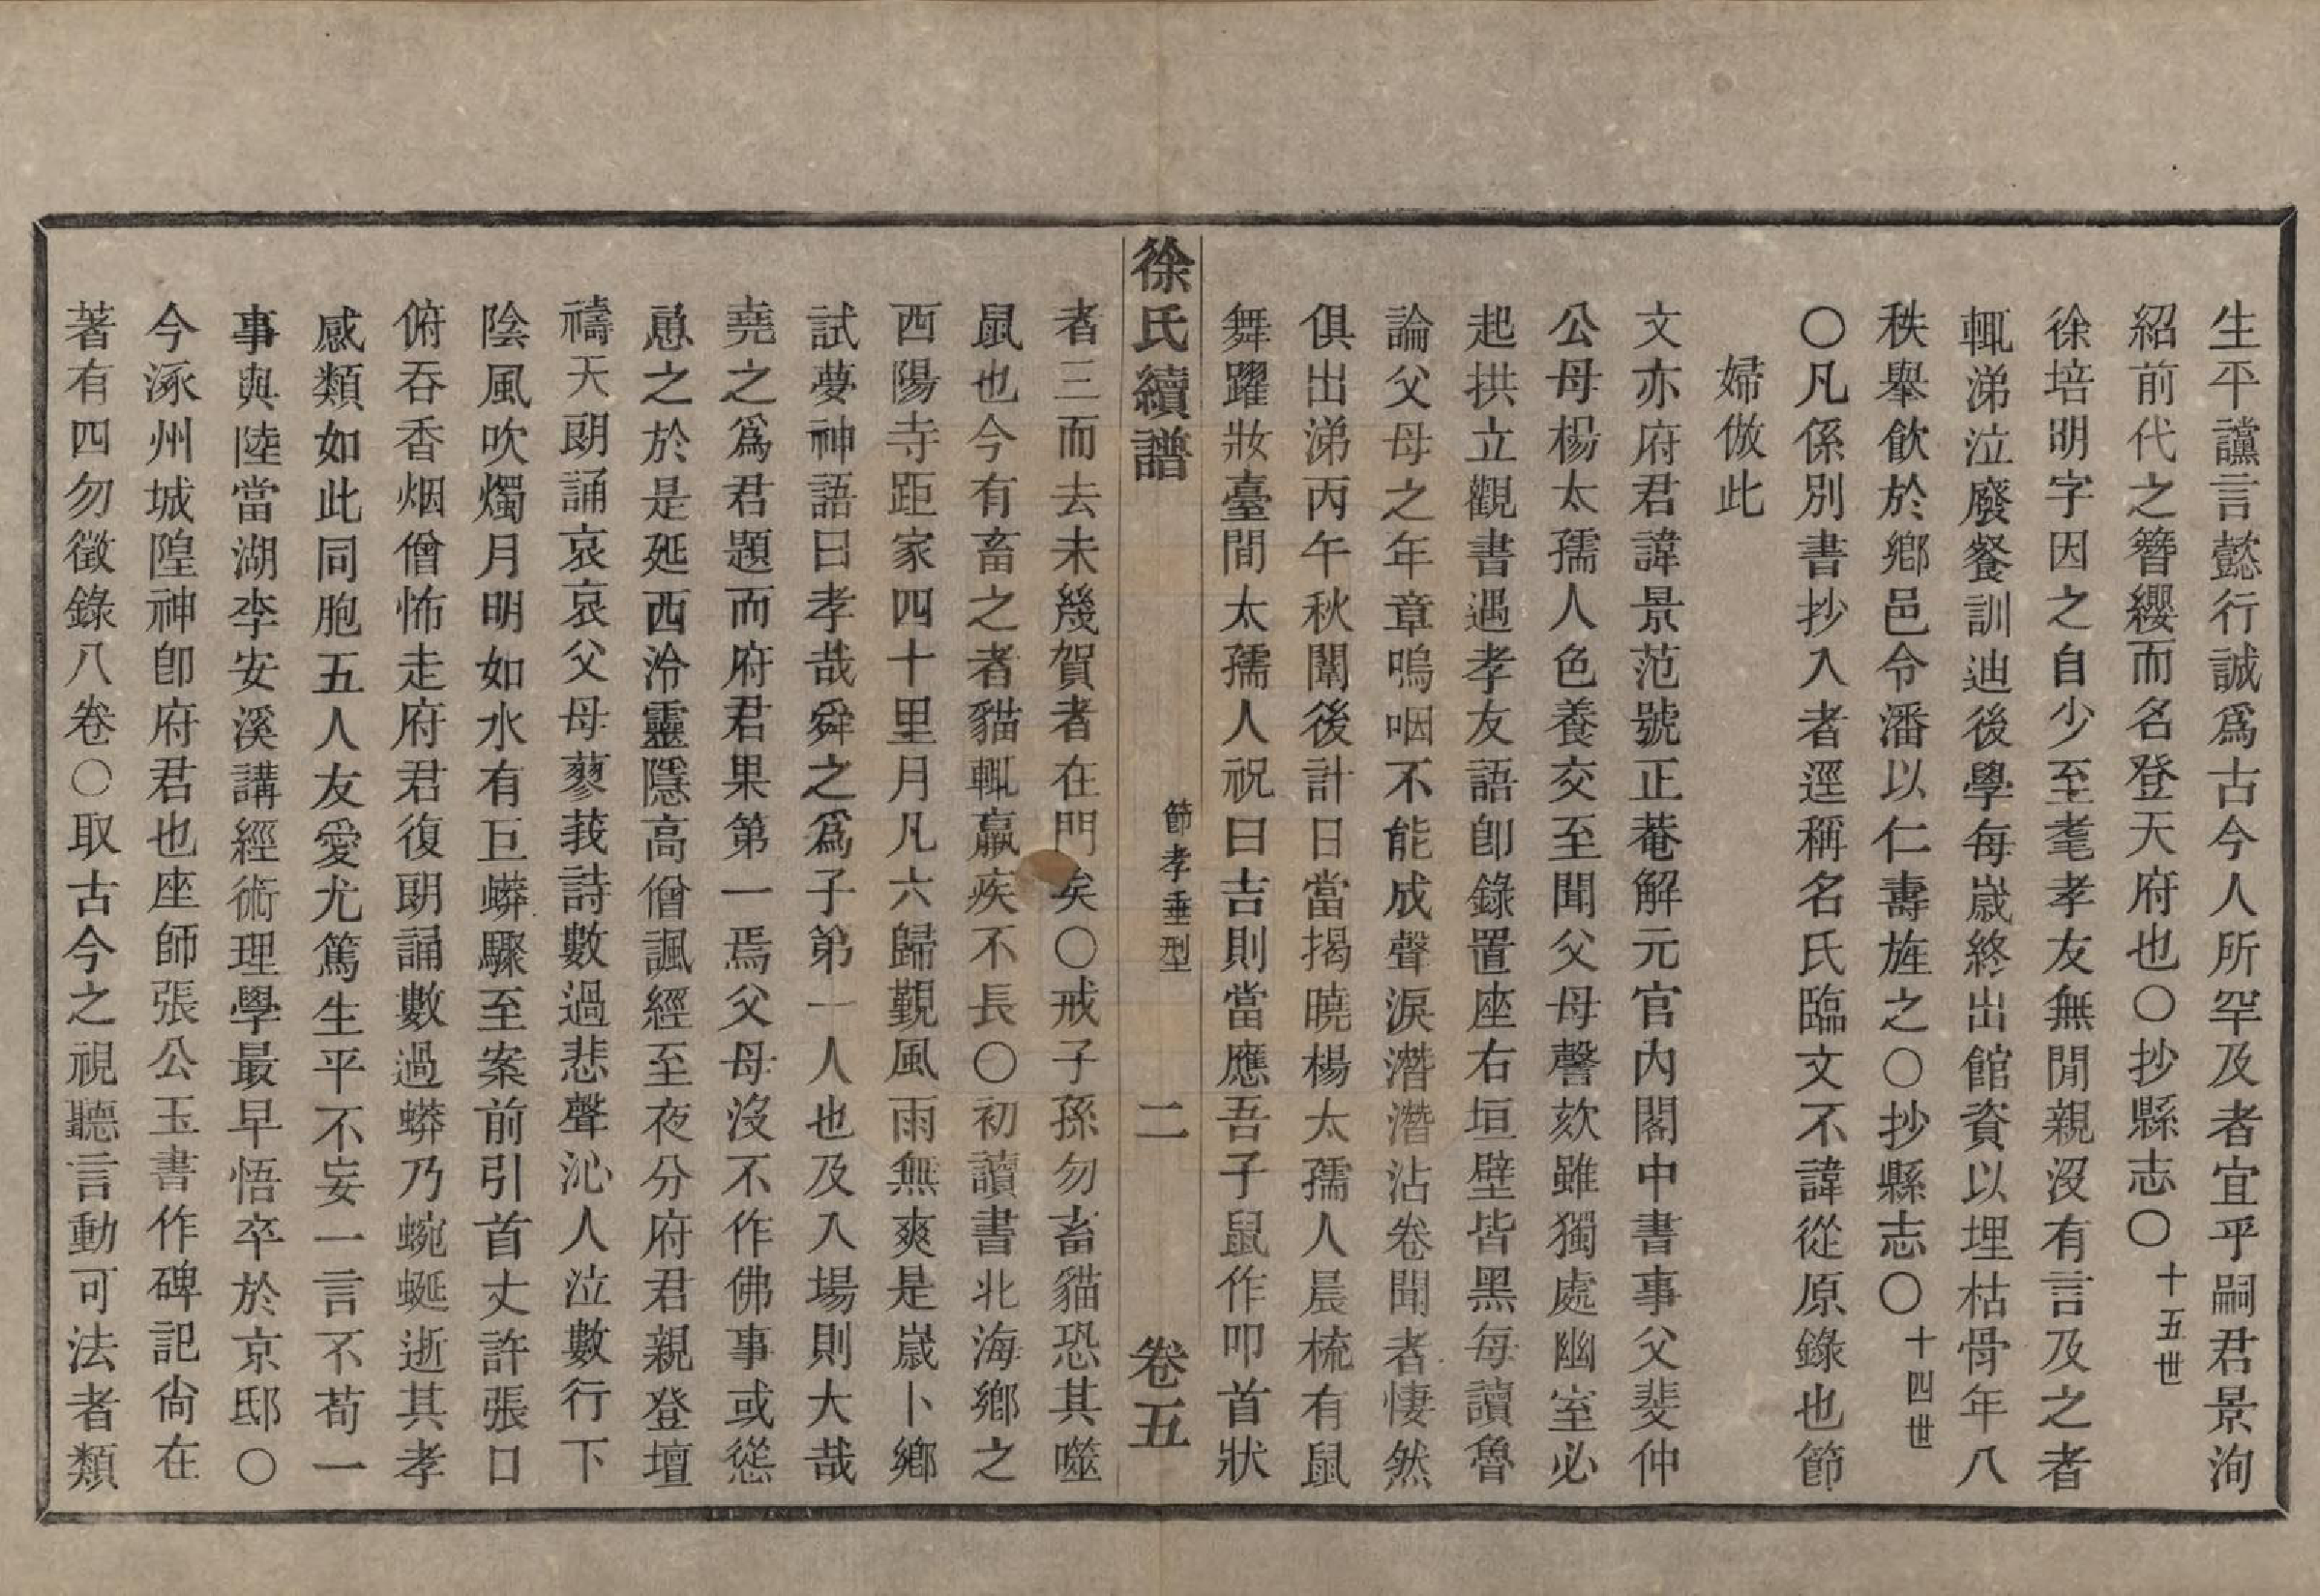 生平讜言懿行誠爲古今人所罕及者宜乎嗣君景洵
紹前代之簪纓而名登天府也〇抄縣志〇十五世
徐培明字因之自少至耄孝友無閒親沒有言及之者
輒涕泣廢餐訓迪後學每歲終出館資以埋枯骨年八
秩舉飲於鄉邑令潘以仁壽旌之〇抄縣志〇十四世
〇凡係別書抄入者逕稱名氏臨文不諱從原錄也節
婦倣此
文亦府君諱景范號正菴解元官內閣中書事父斐仲
公母楊太孺人色養交至聞父母謦欬雖獨處幽室必
起拱立觀書遇孝友語卽錄置座右垣壁皆黑每讀魯
論父母之年章嗚咽不能成聲淚潸潸沾卷聞者悽然
俱出涕丙午秋闈後計日當揭曉楊太孺人晨梳有鼠
舞躍妝臺間太孺人祝曰吉則當應吾子鼠作叩首狀
徐氏續譜 節孝垂型 二 卷五
者三而去未幾賀者在門矣〇戒子孫勿畜貓恐其噬
鼠也今有畜之者貓輒羸疾不長〇初讀書北海鄉之
西陽寺距家四十里月凡六歸覲風雨無爽是歲卜鄉
試夢神語曰孝哉舜之爲子第一人也及入場則大哉
堯之爲君題而府君果第一焉父母沒不作佛事或慫
恿之於是延西泠靈隱高僧諷經至夜分府君親登壇
禱天朗誦哀哀父母蓼莪詩數過悲聲沁人泣數行下
陰風吹燭月明如水有巨蟒驟至案前引首丈許張口
俯吞香烟僧怖走府君復朗誦數過蟒乃蜿蜒逝其孝
感類如此同胞五人友愛尤篤生平不妄一言不苟一
事與陸當湖李安溪講經術理學最早悟卒於京邸〇
今涿州城隍神卽府君也座師張公玉書作碑記尙在
著有四勿徵錄八卷〇取古今之視聽言動可法者類